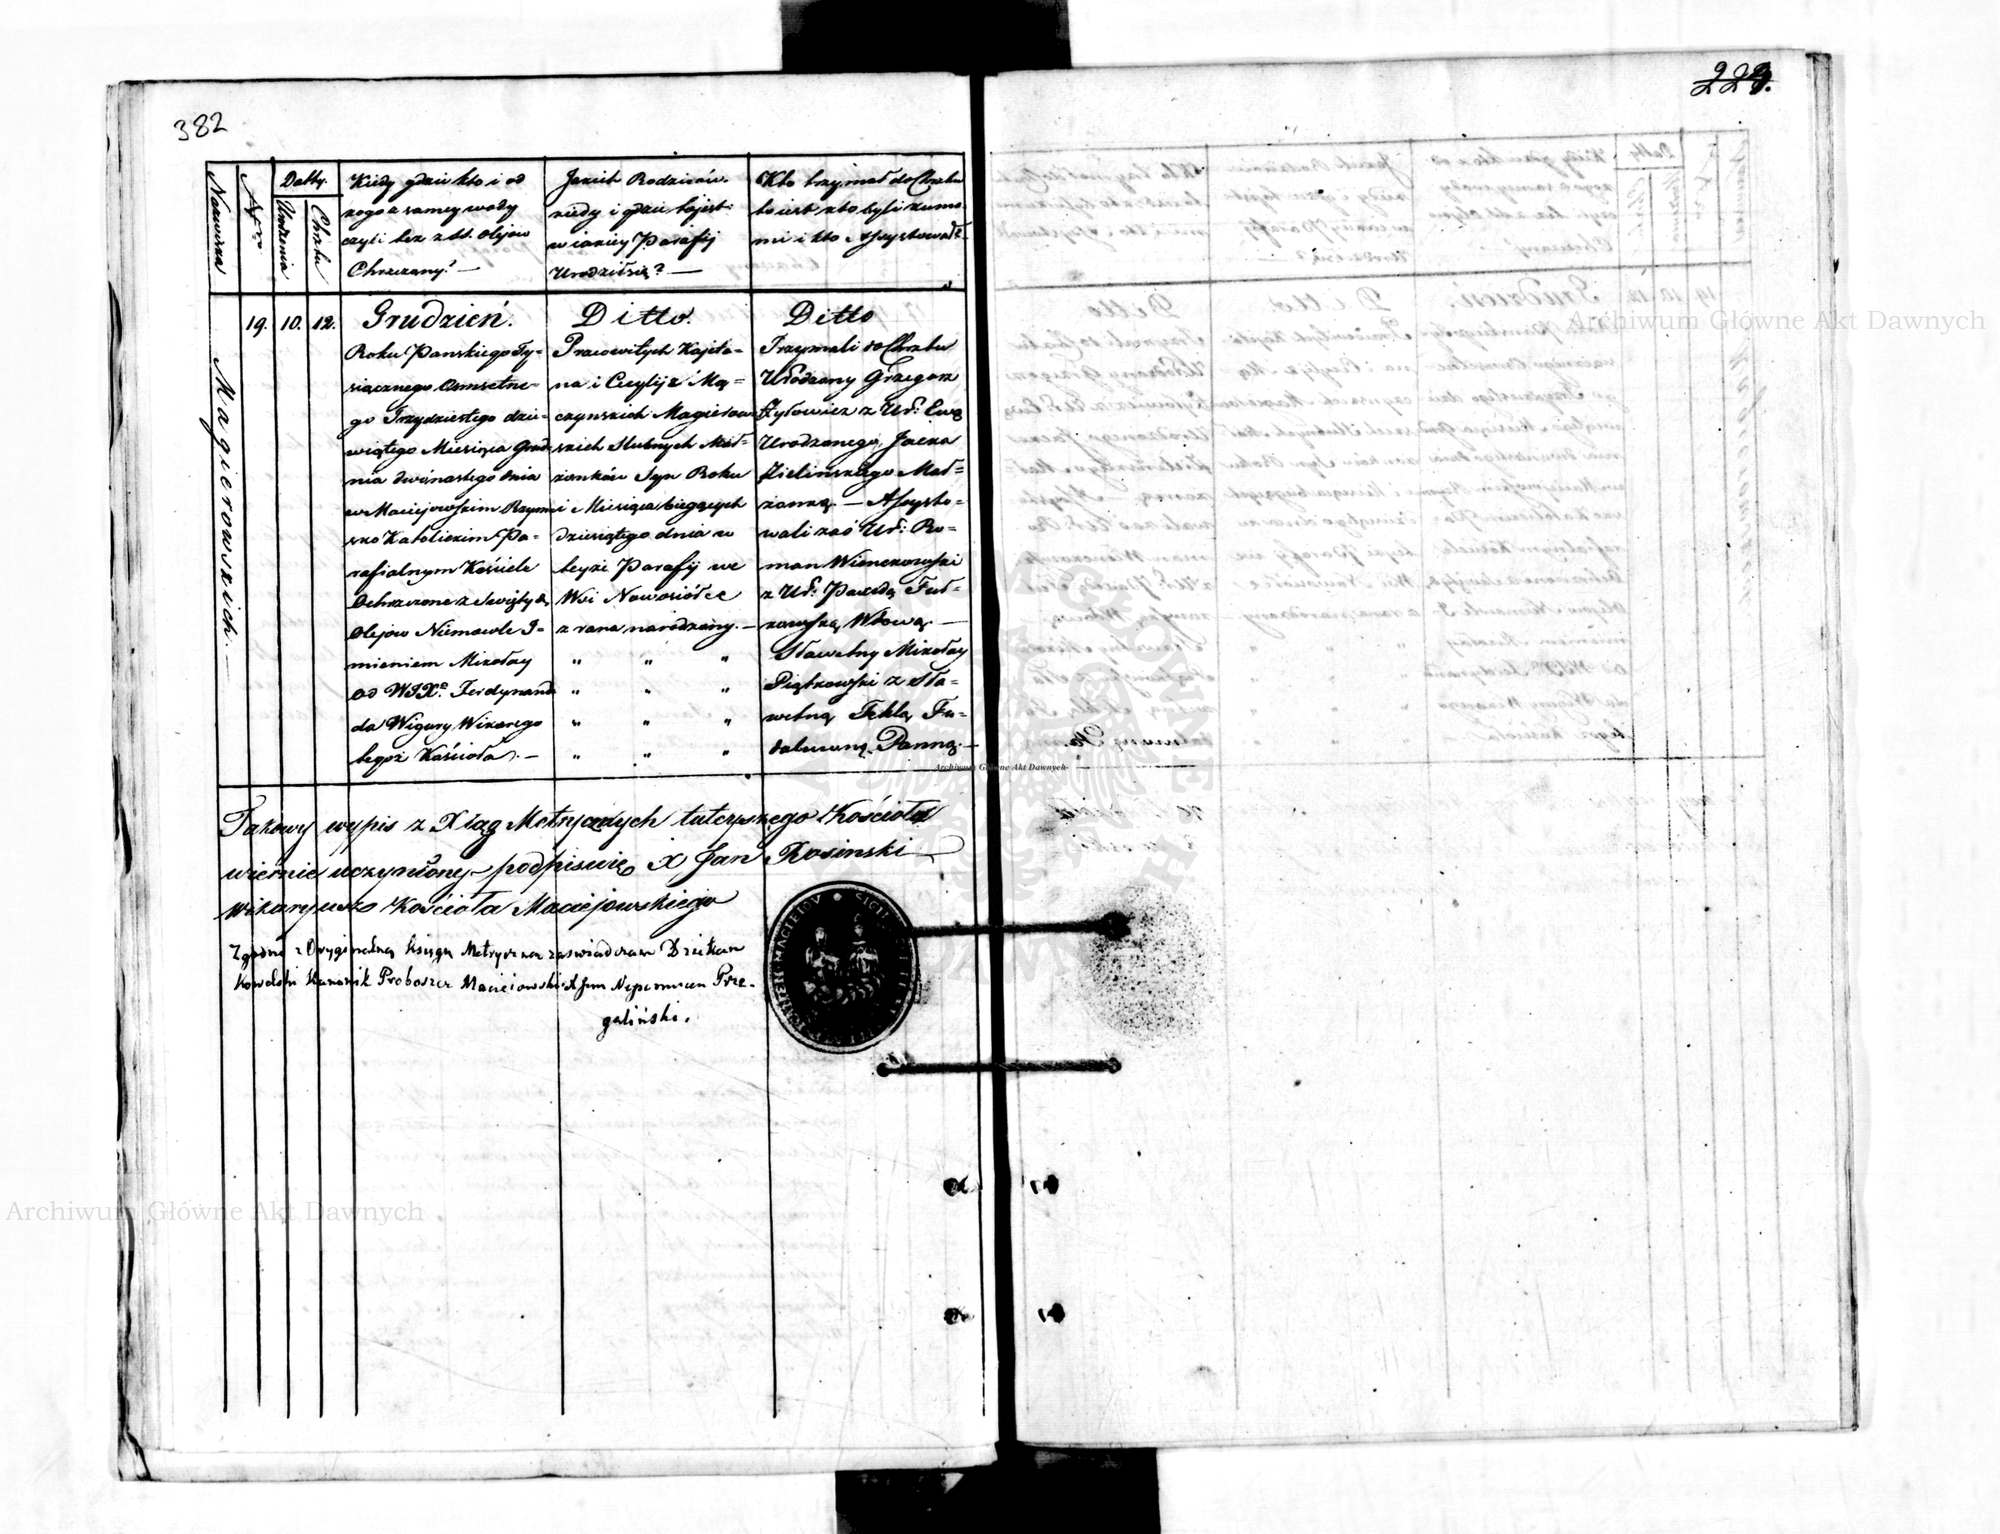 382
229.
Nazwiska
Nro
Datty.
Urodzenia
Chrztu
Kiedy gdzie kto i od
kogo z samey wody
czyli bez z SS. Olejow
Chrzczany? —
Jakich Rodziców.
kiedy i gdzie tojest
w jakiey Parafij
Urodził się? —
Kto trzymał do Chrztu
to iest kto byli kumo-
mi i kto Assystował?
Magierowskich. —
19.
10.
12.
Grudzień.
Roku Panskiego Ty-
siącznego Osmsetne-
go Trzydziestego dzie-
wiątego Miesiąca Grud-
nia dwónastego dnia
w Maciejowskim Rzym-
sko Katolickim Pa-
rafialnym Kościele
Ochrzczone z Swiętych
Olejow Niemowle I-
mieniem Mikołay
od WJXa Ferdynan-
da Wigury Wikarego
tegoż Kościoła. —
Ditto.
Pracowitych Kajeta-
na i Cecylij z Mą-
czynskich Magierow-
skich Slubnych Mał-
żonków Syn Roku
i Miesiąca bieżących
dziesiątego dnia w
teyże Parafij we
Wsi Nowosiółce
z rana narodzony. —
" " "
" " "
" " "
" " "
Ditto
Trzymali do Chrztu
Urodzony Grzegorz
Żyłowicz z Ur: Ewą
Urodzonego Jacka
Zielinskiego Mał-
żonką. — Assysto-
wali zaś Ur: Ro-
man Wienckowski
z Ur:
kowską Wdową. —
Sławetny Mikołay
Piątkowski z Sła-
wetną Teklą Fa-
Panną. —
Takowy wypis z Xiąg Metrycznych tuteyszego Kościoła
wiernie uczyniony — podpisuię X Jan Rosinski —
Wikaryusz Kościoła Maciejowskiego
Zgodno z Orygynalną księgą Metryczną zaswiadczam Dziekan
Kowelski Kanonik Proboszcz Maciejowski X Jan Nepomucen Prze-
galiński.
Archiwum Główne Akt Dawnych
Archiwum Główne Akt Dawnych
Archiwum Główne Akt Dawnych